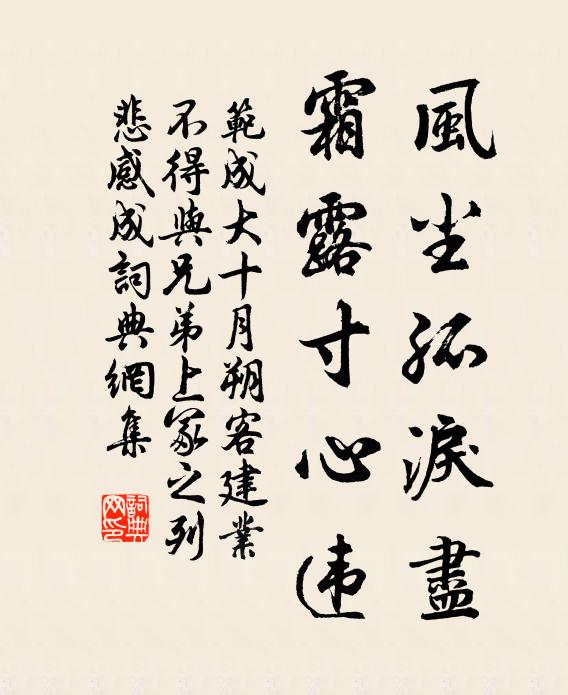 風尘孤淚盡
霜露寸心违
範成大十月朔客建業
不得與兄弟上冢之列
悲感成詞典網集
詞典网印